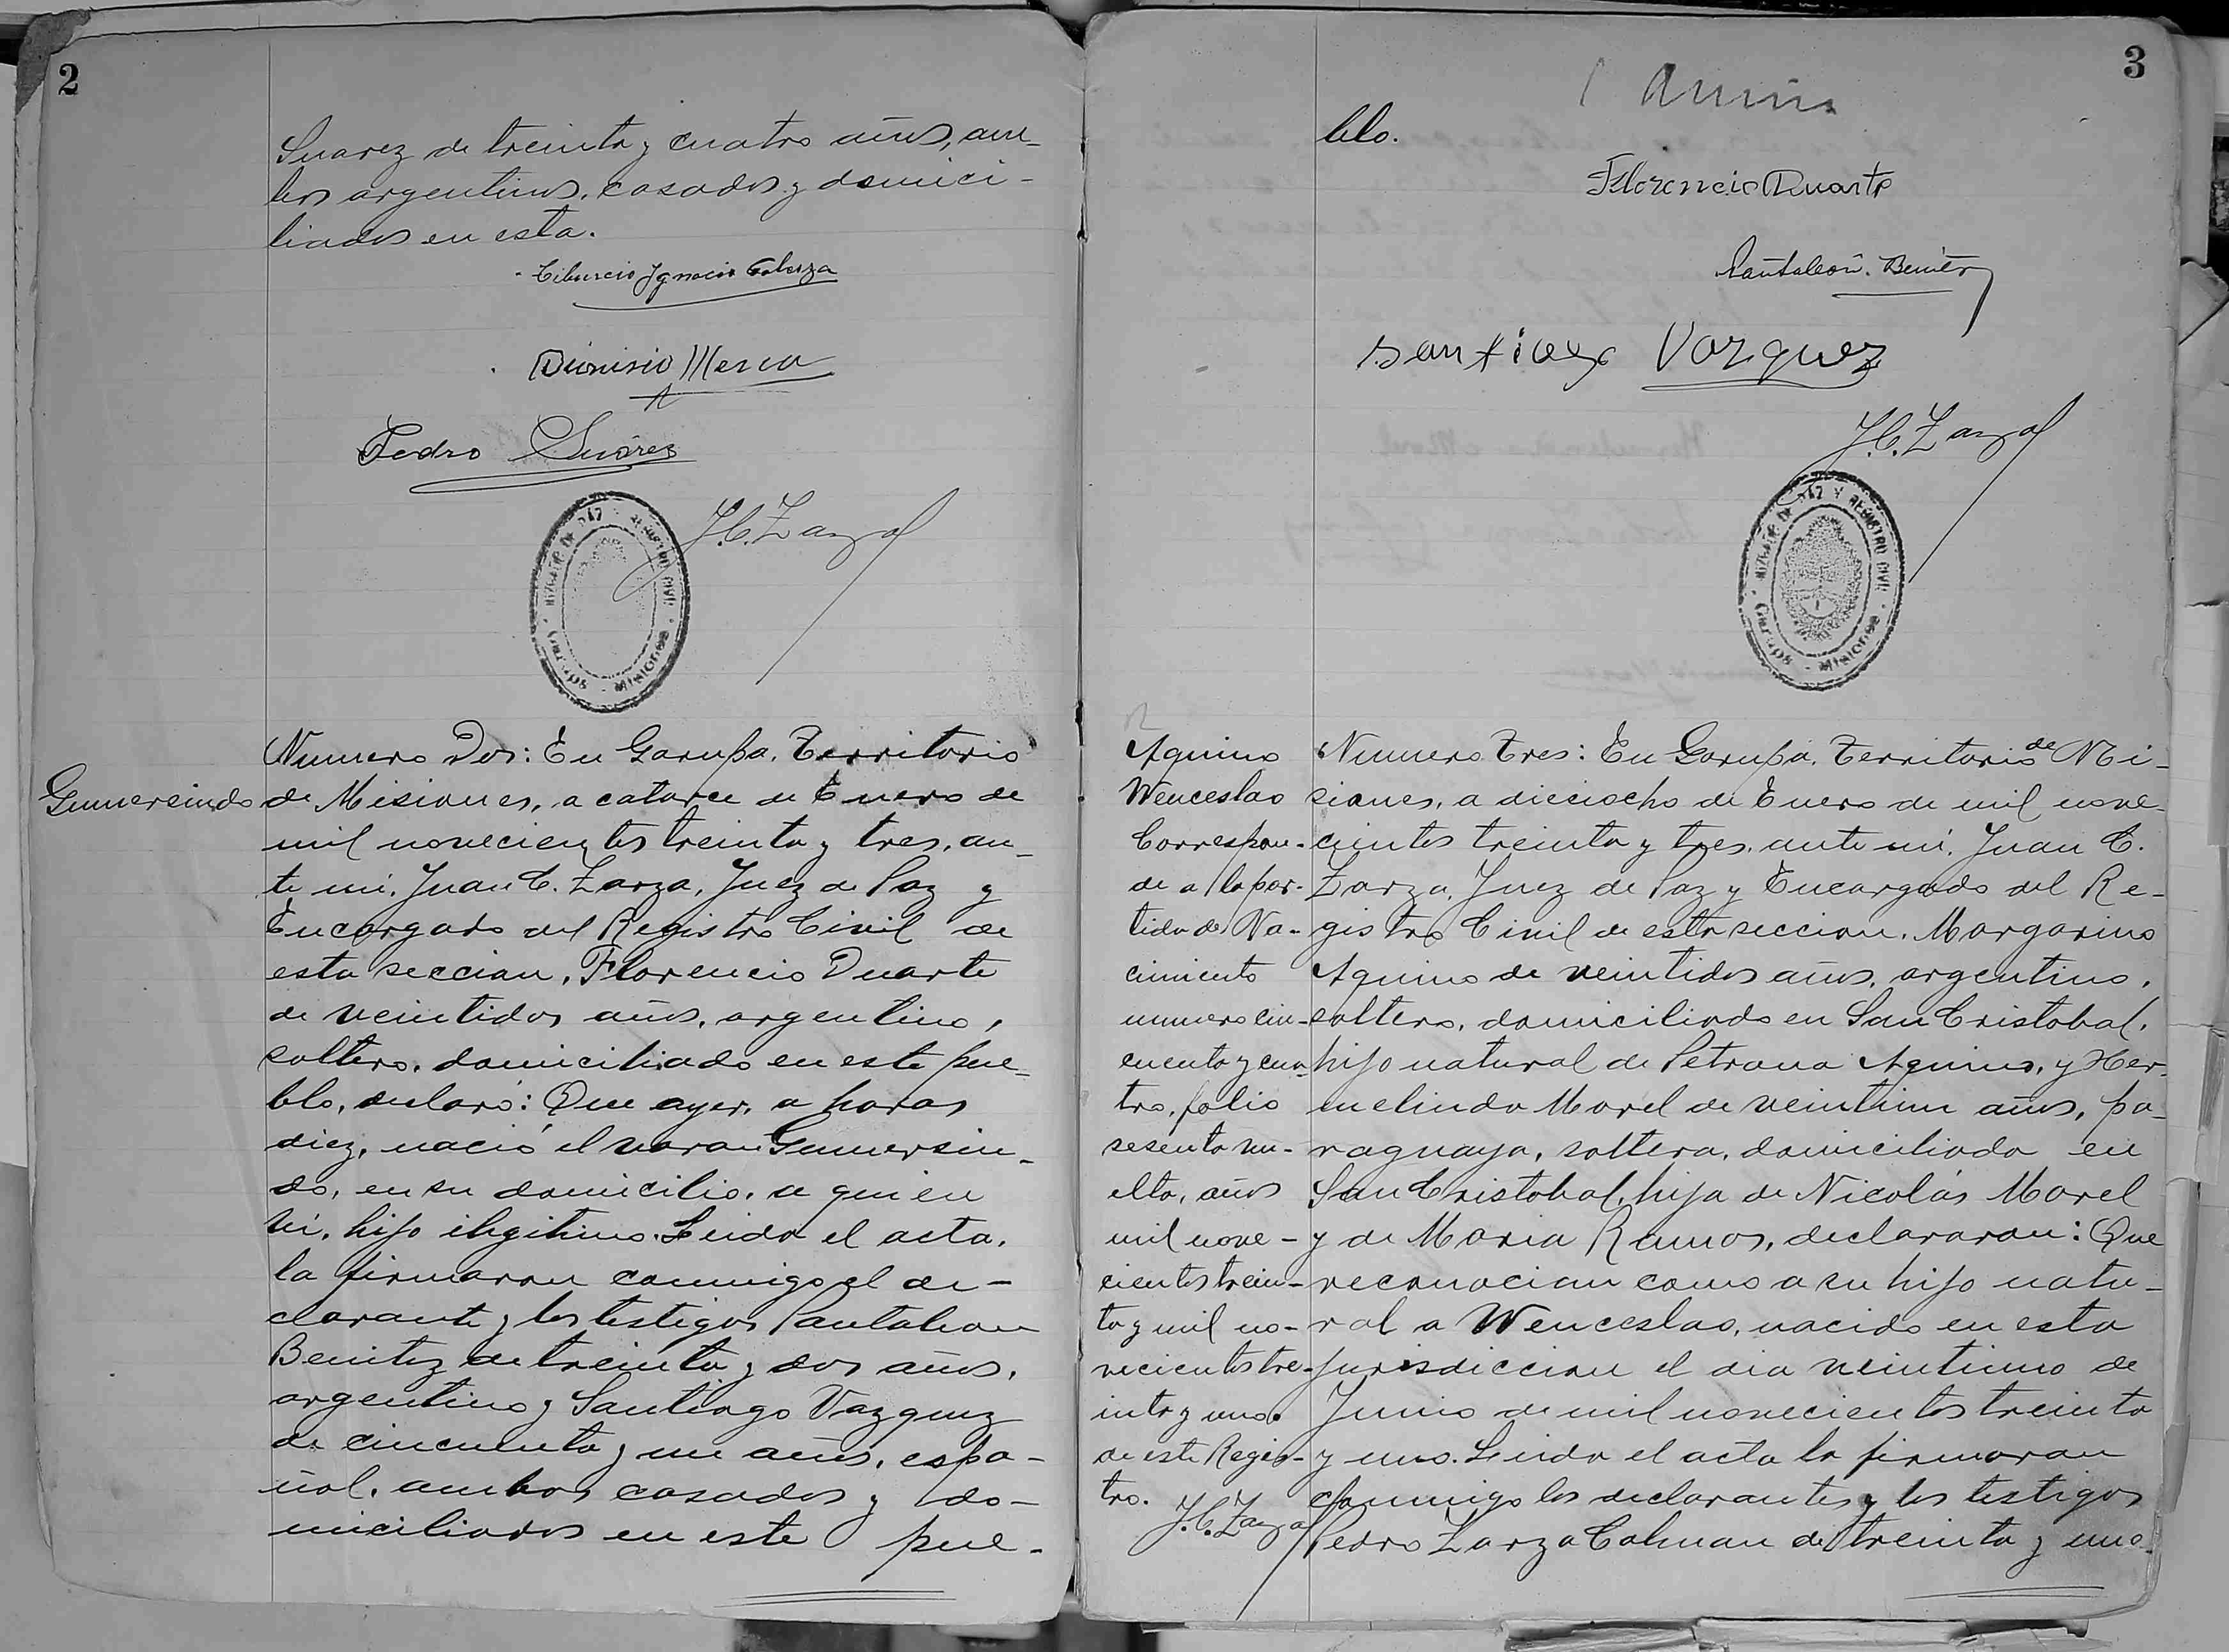 2
Suarez de treinta y cuatro años, am-
bos argentinos, casados y domici-
liados en esta.
Tiburcio Ignacio
Dionisio
Pedro Suárez
J.C. Zarza
JUZGADO DE PAZ Y REGISTRO CIVIL
GARUPÁ - MISIONES
Gumersindo
Numero Dos: En Garupá, Territorio
de Misiones, a catorce de Enero de
mil novecientos treinta y tres, an-
te mí, Juan C. Zarza, Juez de Paz y
Encargado del Registro Civil de
esta seccion, Florencio Duarte
de veintidos años, argentino,
soltero, domiciliado en este pue-
blo, declaró: Que ayer, a horas
diez, nació el varon Gumersin-
do, en su domicilio, a quien
ví, hijo ilegitimo. Leida el acta,
la firmaron conmigo el de-
clarante y los testigos Pantaleon
Benitez de treinta y dos años,
argentino y Santiago Vazquez
de cincuenta y un años, espa-
ñol, ambos casados y do-
miciliados en este pue-
3
blo.
Florencio Duarte
Pantaleón Benítez
santiago Vazquez
J.C. Zarza
JUZGADO DE PAZ Y REGISTRO CIVIL
GARUPÁ - MISIONES
Aquino
Wenceslao
Correspon-
de a la par-
tida de Na-
cimiento
numero cin-
cuenta y cua-
tro, folio
sesenta vu-
elto, años
mil nove-
cientos trein-
ta y mil no-
vecientos tre-
inta y uno.
de este Regis-
tro.
J.C. Zarza
Numero Tres: En Garupá, Territorio de Mi-
siones, a dieciocho de Enero de mil nove-
cientos treinta y tres, ante mí, Juan C.
Zarza, Juez de Paz y Encargado del Re-
gistro Civil de esta seccion, Margarino
Aquino de veintidos años, argentino,
soltero, domiciliado en San Cristobal,
hijo natural de Petrona Aquino, y Her-
melinda Morel de veintiun años, pa-
raguaya, soltera, domiciliada en
San Cristobal, hija de Nicolás Morel
y de Maria Ramos, declararon: Que
reconocian como a su hijo natu-
ral a Wenceslao, nacido en esta
jurisdiccion el dia veintiuno de
Junio de mil novecientos treinta
y uno. Leida el acta la firmaron
conmigo los declarantes y los testigos
Pedro Zarza Colman de treinta y uno